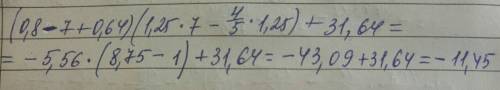 (0,8-7+0,64)(1,25·7-4/5·1,25)+31,64=
=-5,56·(8,75-1)+31,64=-43,09+31,64=-11,45